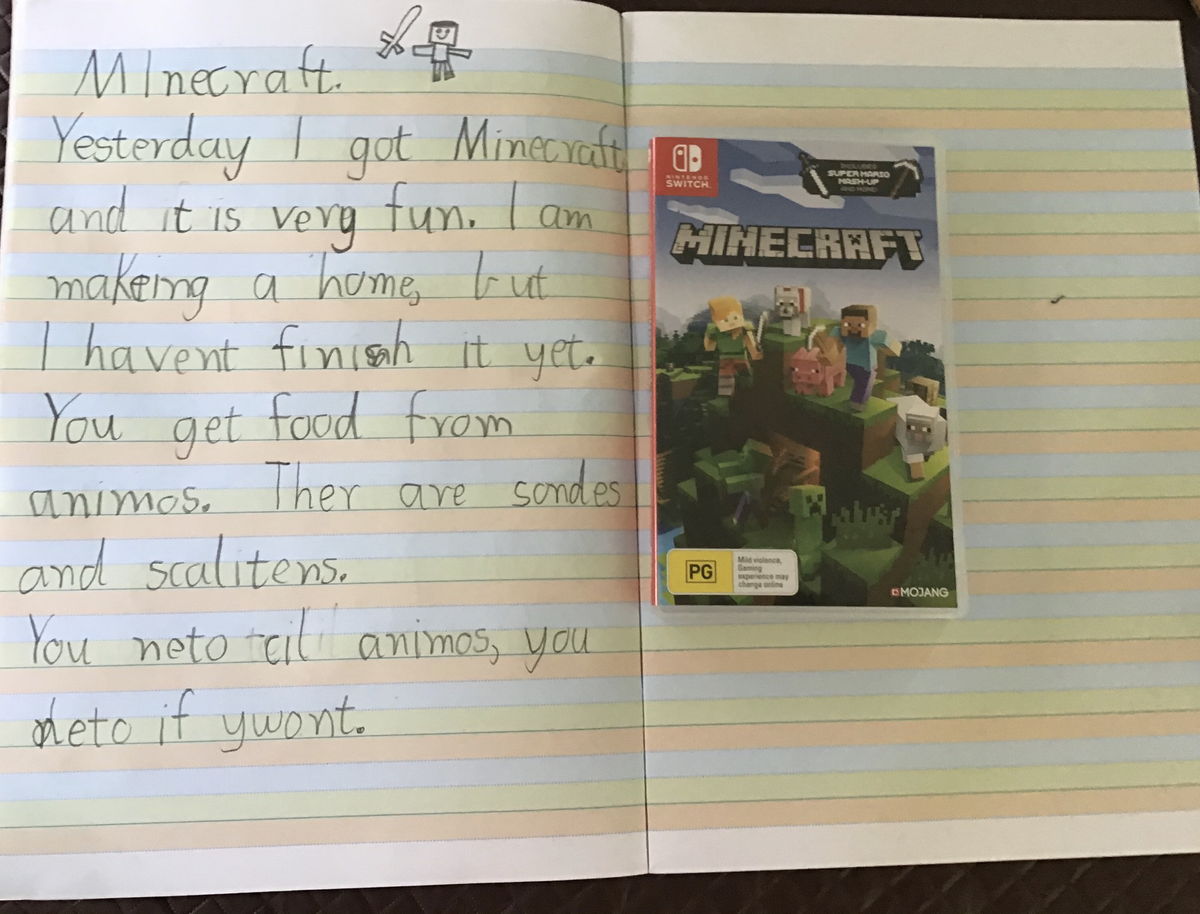 MInecraft.
Yesterday I got Minecraft
and it is very fun. I am
makeing a home, but
I havent finish it yet.
You get food from
animos. Ther are sondes
and scalitens.
You neto cil animos, you
neto if ywont.
NINTENDO
SWITCH
INCLUDES
SUPER MARIO
MASH-UP
AND MORE!
MINECRAFT
PG
Mild violence,
Gaming
experience may
change online
MOJANG